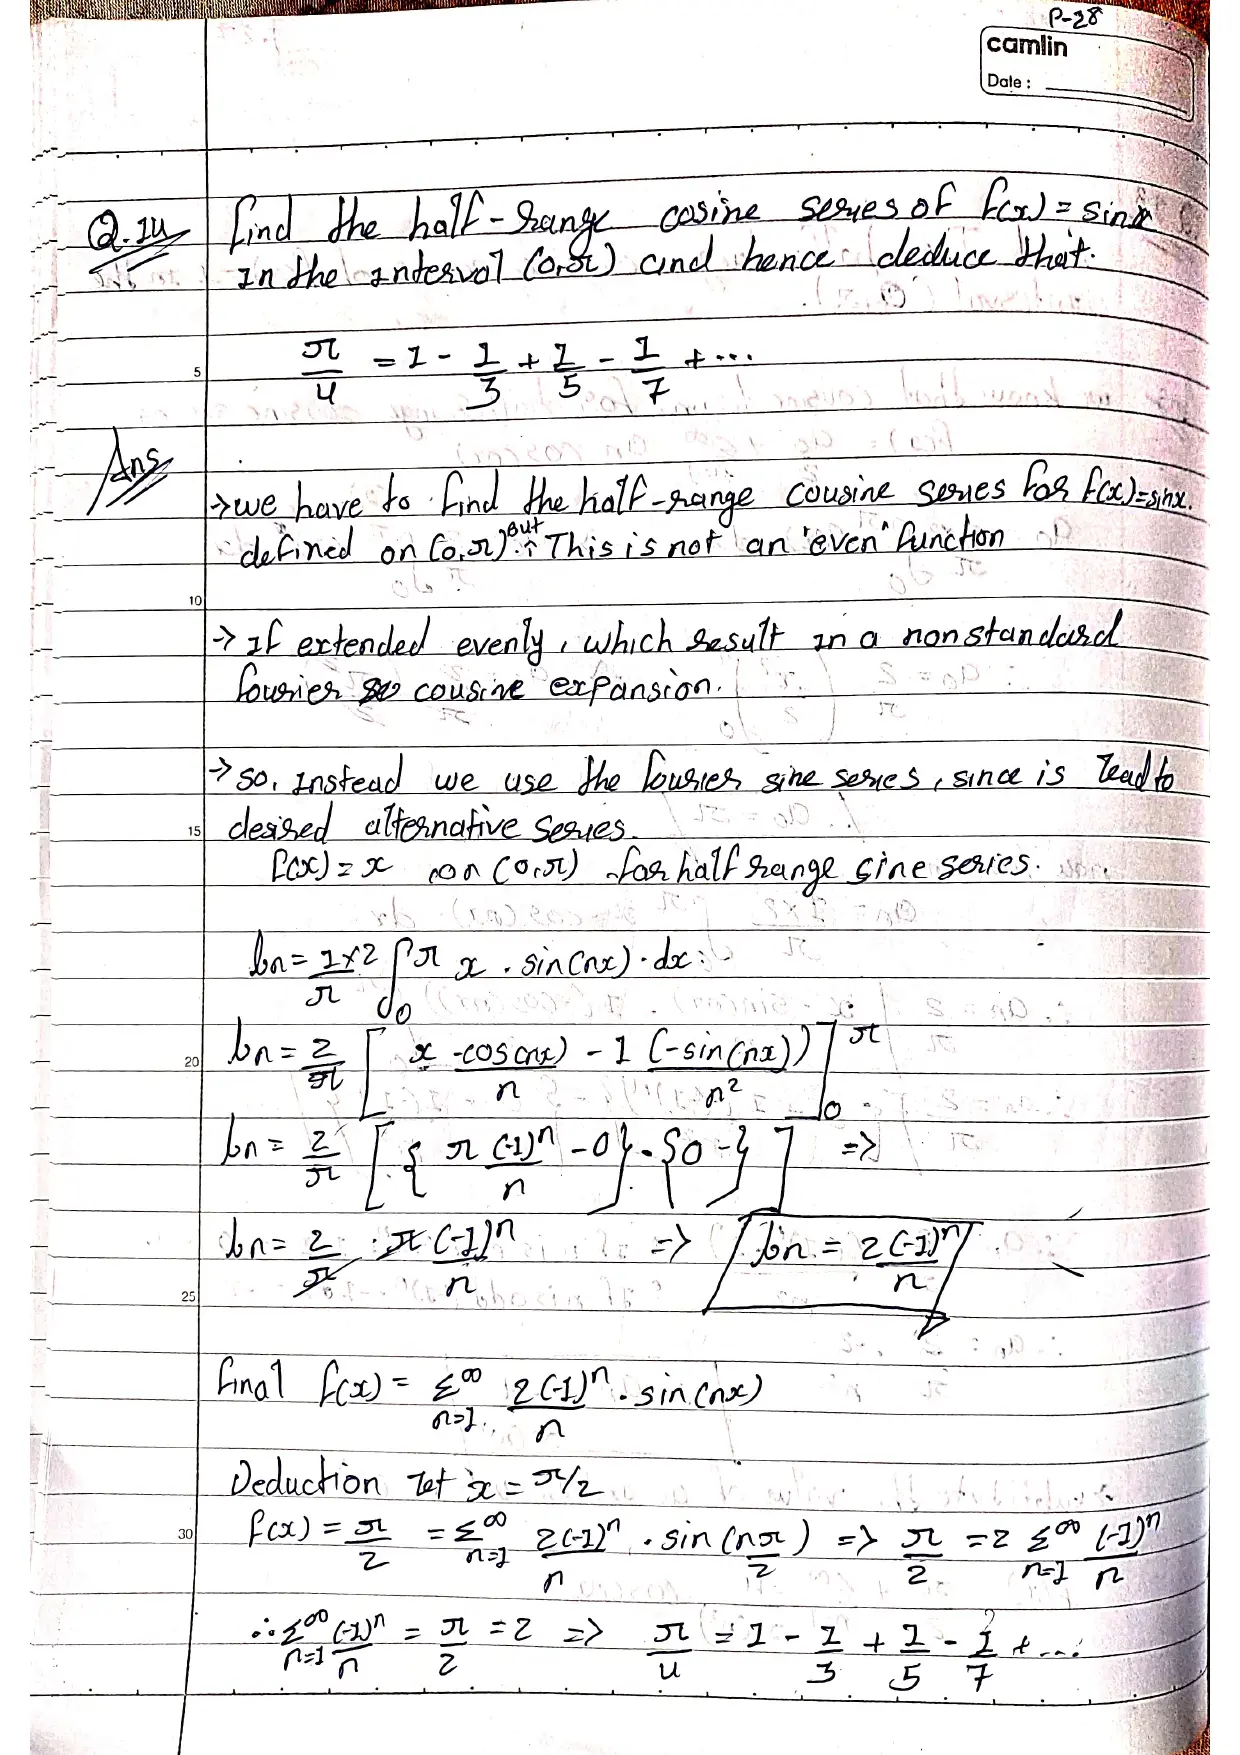 P-28
camlin
Date :
Q.14 Find the half-range cosine series of f(x) = sinx
In the Interval (0,π) and hence deduce that.
π/4 = 1 - 1/3 + 1/5 - 1/7 + ...
5
Ans
→ we have to find the half-range cousine series for f(x)=sinx.
defined on (0,π) But This is not an 'even' function
10
→ If extended evenly, which result in a nonstandard
fourier cousine expansion.
→ so, Instead we use the fourier sine series, since is lead to
15 desired alternative series.
f(x) = x on (0,π) for half range sine series.
bn = 1×2/π ∫0^π x . sin(nx) . dx
20 bn = 2/π [ x -cos(nx)/n - 1 (-sin(nx))/n² ]0^π
bn = 2/π [ { π (-1)^n/n - 0 } - { 0 - } ] =>
bn = 2/π . π (-1)^n/n => bn = 2(-1)^n/n
25
Final f(x) = Σ^∞ n=1 2(-1)^n/n . sin(nx)
Deduction let x = π/2
30 f(x) = π/2 = Σ^∞ n=1 2(-1)^n/n . sin(nπ/2) => π/2 = 2 Σ^∞ n=1 (-1)^n/n
∴ Σ^∞ n=1 (-1)^n/n = π/2 = 2 => π/4 = 1 - 1/3 + 1/5 - 1/7 + ...